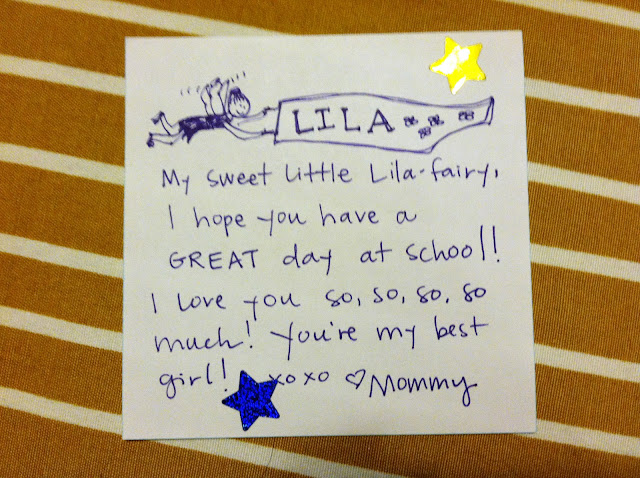 LILA
My sweet little Lila-fairy,
I hope you have a
GREAT day at school!!
I love you so, so, so, so
much! You're my best
girl! xoxo ♡Mommy